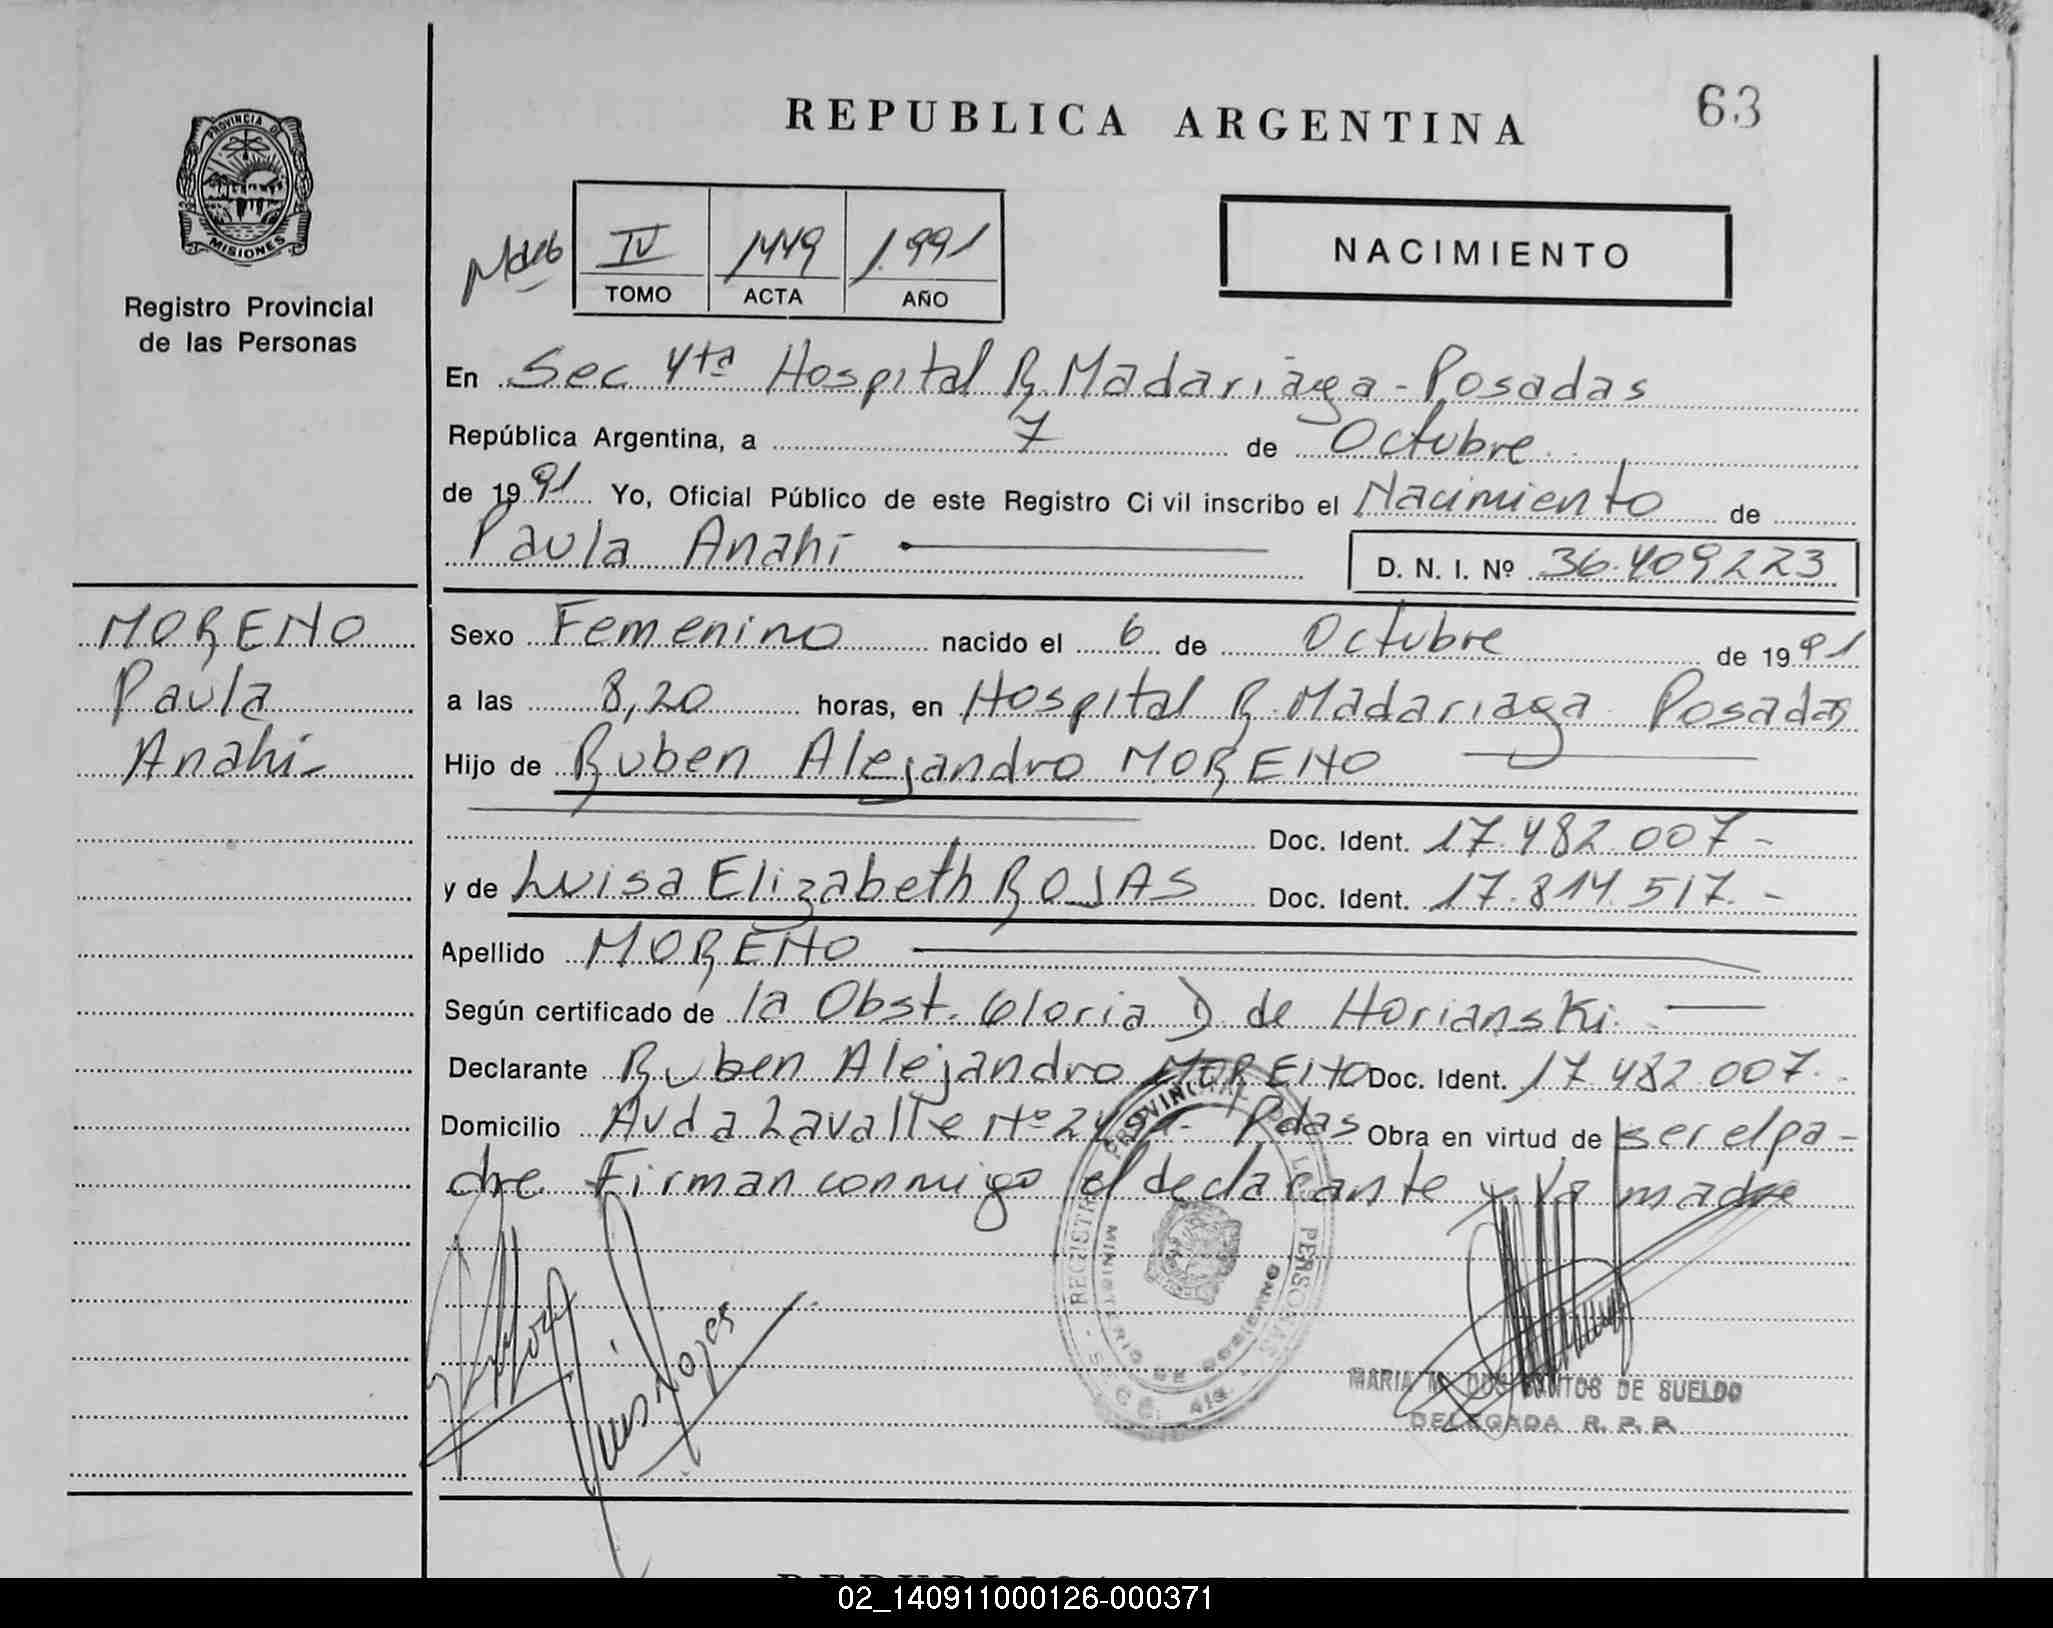 REPUBLICA ARGENTINA
63
PROVINCIA DE
MISIONES
Registro Provincial
de las Personas
IV 1449 1.991
TOMO ACTA AÑO
NACIMIENTO
En Sec 4ta Hospital R. Madariaga - Posadas
República Argentina, a 7 de Octubre
de 1991 Yo, Oficial Público de este Registro Civil inscribo el Nacimiento de
Paula Anahi
D. N. I. Nº 36.409223
MORENO
Paula
Anahi-
Sexo Femenino nacido el 6 de Octubre de 1991
a las 8,20 horas, en Hospital R. Madariaga Posadas
Hijo de Ruben Alejandro MORENO
Doc. Ident. 17.482.007-
y de Luisa Elizabeth ROJAS Doc. Ident. 17.814.517.-
Apellido MORENO
Según certificado de la Obst. Gloria D de Horianski.
Declarante Ruben Alejandro MORENO Doc. Ident. 17.482.007.
Domicilio Avda Lavalle Nº Pdas Obra en virtud de ser el pa-
dre Firman conmigo el declarante y la madre
REGISTRO PROVINCIAL DE LAS PERSONAS
MINISTERIO DE GOBIERNO
Luis Rojas
MARIA DE SUELDO
DELEGADA R. P. P.
02_140911000126-000371